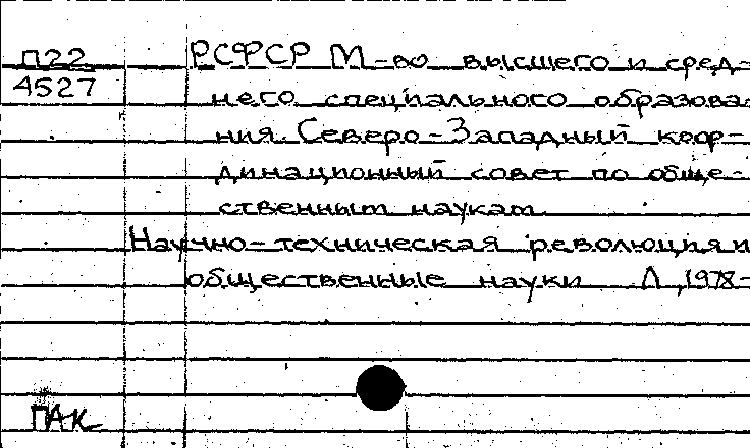 П22
4527
РСФСР М-во высшего и сред-
него специального образова-
ния. Северо-Западный коор-
динационный совет по обще-
ственным наукам
Научно-техническая революция и
общественные науки Л, 1978-
ПАК